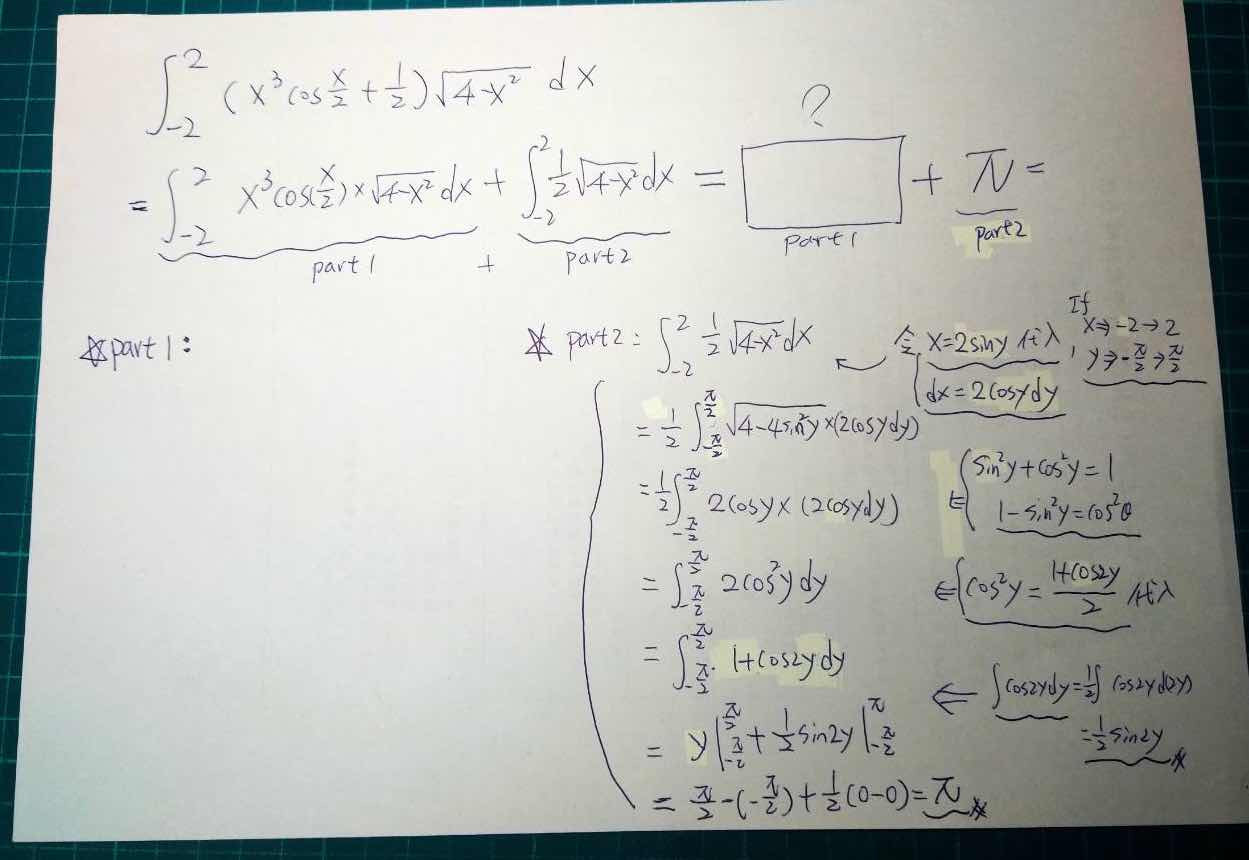 ∫_{-2}^{2} (x³cos x/2 + 1/2) √(4-x²) dx
= ∫_{-2}^{2} x³cos(x/2) × √(4-x²) dx + ∫_{-2}^{2} 1/2 √(4-x²) dx = ☐ + π =
?
part1 + part2
part1
part2
☆part1:
☆ part2: ∫_{-2}^{2} 1/2 √(4-x²) dx
令 x=2siny 代入
dx=2cosydy
If
x⇒-2→2
, y⇒-π/2→π/2
= 1/2 ∫_{-π/2}^{π/2} √(4-4sin²y) × (2cosydy)
= 1/2 ∫_{-π/2}^{π/2} 2cosy × (2cosydy)
⇐ { sin²y+cos²y=1
1-sin²y=cos²θ
= ∫_{-π/2}^{π/2} 2cos²y dy
⇐ { cos²y = (1+cos2y)/2 代入
= ∫_{-π/2}^{π/2} 1+cos2ydy
⇐ ∫cos2ydy = 1/2∫ cos2yd(2y)
= 1/2 sin2y
= y|_{-π/2}^{π/2} + 1/2 sin2y |_{-π/2}^{π}
= π/2-(-π/2)+1/2(0-0)=π